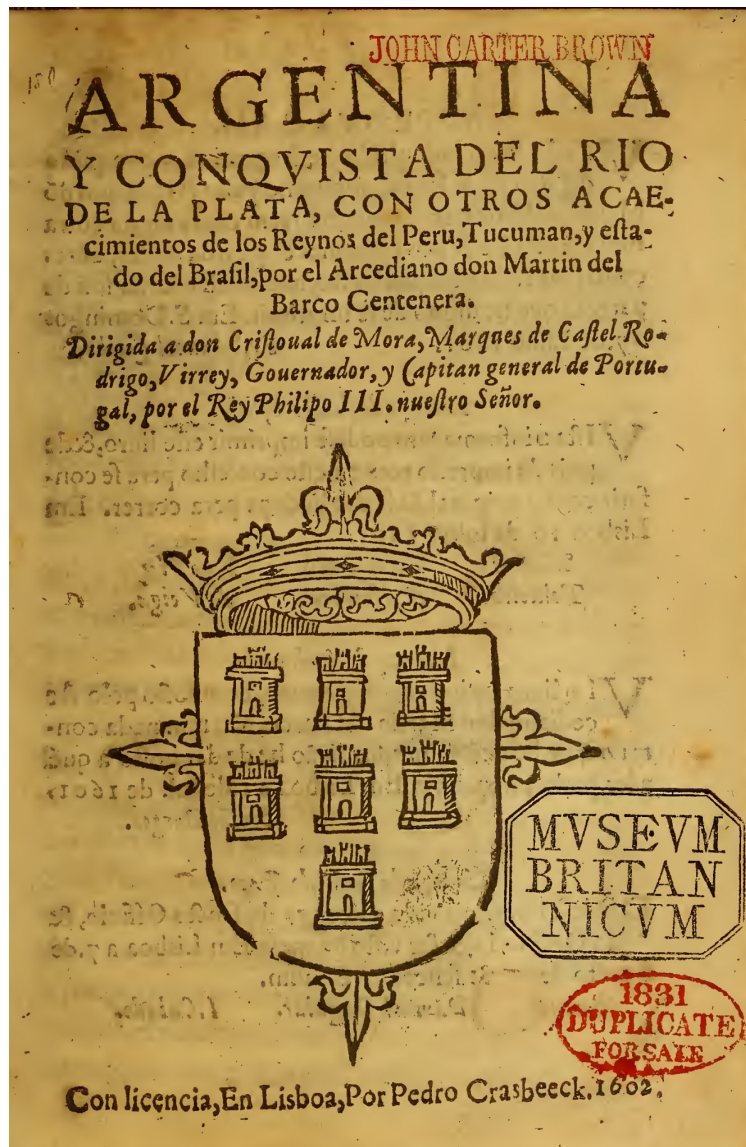 JOHN CARTER BROWN
ARGENTINA
Y CONQVISTA DEL RIO
DE LA PLATA, CON OTROS ACAE-
cimientos de los Reynos del Peru, Tucuman, y esta-
do del Brasil, por el Arcediano don Martin del
Barco Centenera.
Dirigida a don Cristoual de Mora, Marques de Castel Ro-
drigo, Virrey, Gouernador, y Capitan general de Portu-
gal, por el Rey Philipo III. nuestro Señor.
MVSEVM
BRITAN
NICVM
1831
DUPLICATE
FOR SALE
Con licencia, En Lisboa, Por Pedro Crasbeeck. 1602.